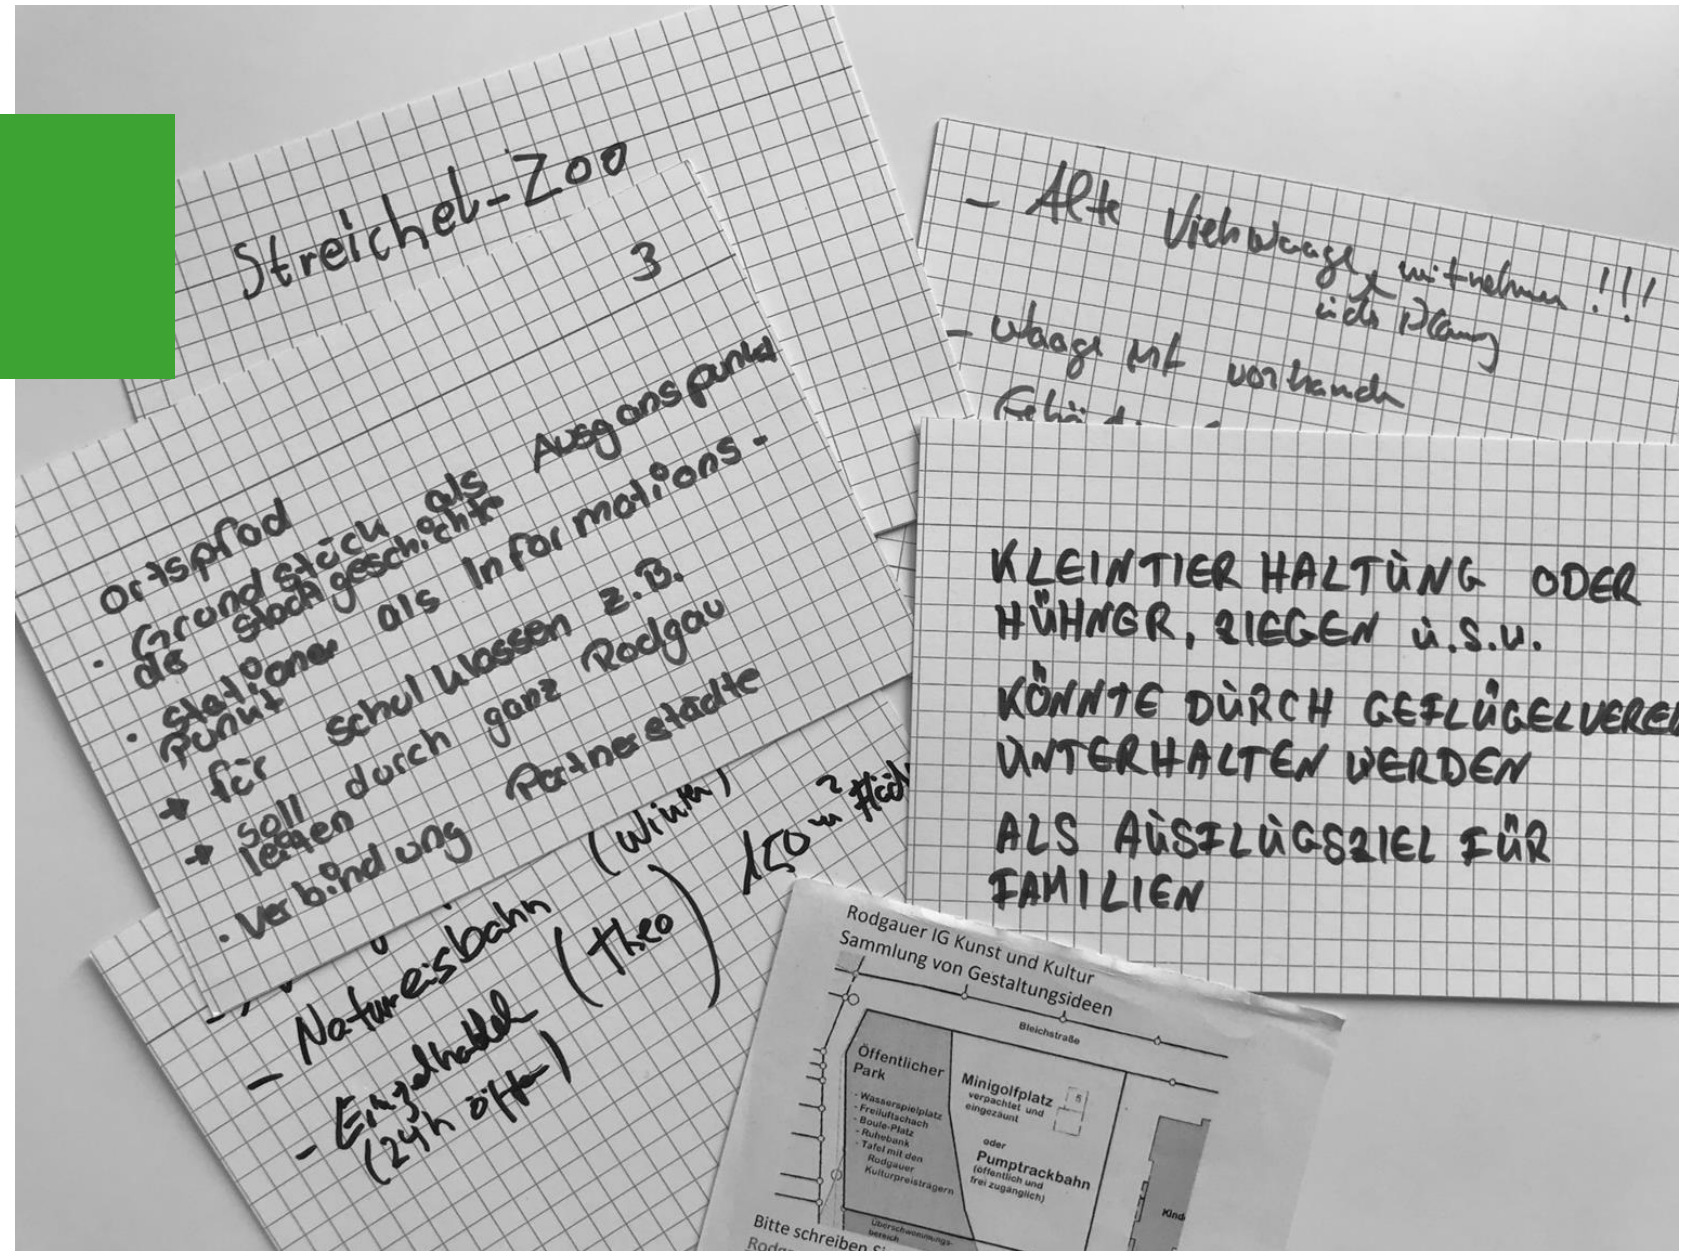 Streichel-Zoo
3
Ortspfad
· Grundstück als Ausganspunkt
der Stadtgeschichte
· Stationen als Informations-
punkt
→ für Schulklassen z.B.
→ soll durch ganz Rodgau
leiten
· Verbindung Partnerstädte
- Alte Viehwaage mitnehmen !!!
in die Planung
- Waage mit vorhanden
KLEINTIERHALTUNG ODER
HÜHNER, ZIEGEN U.S.W.
KÖNNTE DURCH GEFLÜGELVEREI
UNTERHALTEN WERDEN
ALS AUSFLUGSZIEL FÜR
FAMILIEN
- Natureisbahn (Winter)
- Einzelhandel (Theo) 150 m²
(24h offen)
Rodgauer IG Kunst und Kultur
Sammlung von Gestaltungsideen
Bleichstraße
Öffentlicher
Park
- Wasserspielplatz
- Freiluftschach
- Boule-Platz
- Ruhebank
- Tafel mit den
Rodgauer
Kulturpreisträgern
Minigolfplatz
verpachtet und
eingezäunt
oder
Pumptrackbahn
(öffentlich und
frei zugänglich)
Kind
Überschwemmungs-
bereich
Bitte schreiben Si
Rodg